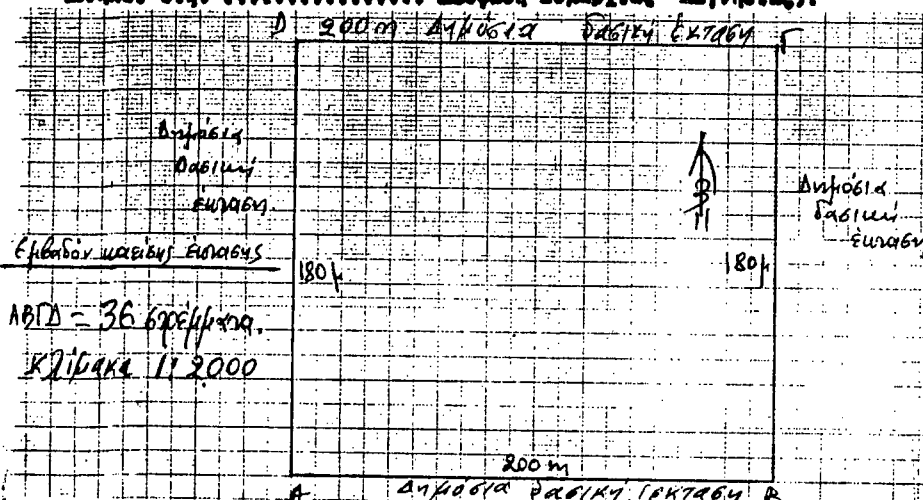 Δ 200 m Δημόσια δασική έκταση Γ
Δημόσια
δασική
έκταση.
Δημόσια
δασική
έκταση
Εμβαδόν καείσης έκτασης
180μ 180μ
ΑΒΓΔ = 36 στρέμματα.
Κλίμακα 1:2000
200 m
Α Δημόσια δασική έκταση Β